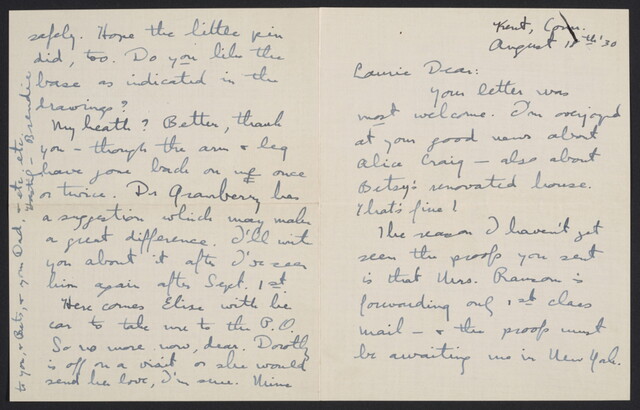 Kent, Conn.
August 11th '30
Laurie Dear:
Your letter was
most welcome. I'm overjoyed
at your good news about
Alice Craig — also about
Betsy's renovated house.
That's fine!
The reason I haven't yet
seen the proofs you sent
is that Mrs. Ransom is
forwarding only 1st class
mail — & the proofs must
be awaiting me in New York.
safely. Hope the little pin
did, too. Do you like the
base as indicated in the
drawings?
My heath? Better, thank
you — though the arm & leg
have gone back on me once
or twice. Dr Granberry has
a suggestion which may make
a great difference. I'll write
you about it after I've seen
him again after Sept. 1st.
Here comes Elise with her
car to take me to the P.O.
So no more now, dear. Dorothy
is off on a visit or she would
send her love, I'm sure. Mine
to you, & Bets, & your Dad. — etc. etc.